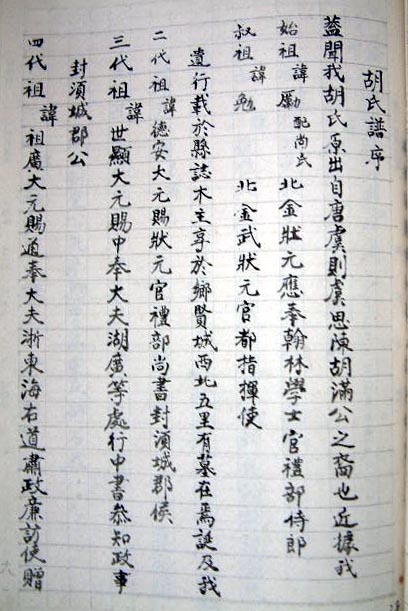 胡氏譜序
蓋聞我胡氏原出自唐虞則虞思陳胡滿公之裔也近據我
始祖諱勵配尚氏 北金狀元應奉翰林學士官禮部侍郎
叔祖諱勉 北金武狀元官都指揮使
遺行載於縣誌木主享於鄉賢城西北五里有墓在焉誕及我
二代祖諱德安大元賜狀元官禮部尚書封湏城郡侯
三代祖諱世顯大元賜中奉大夫湖廣等處行中書叅知政事
封湏城郡公
四代祖諱祖廣大元賜通奉大夫浙東海右道肅政廉訪使贈